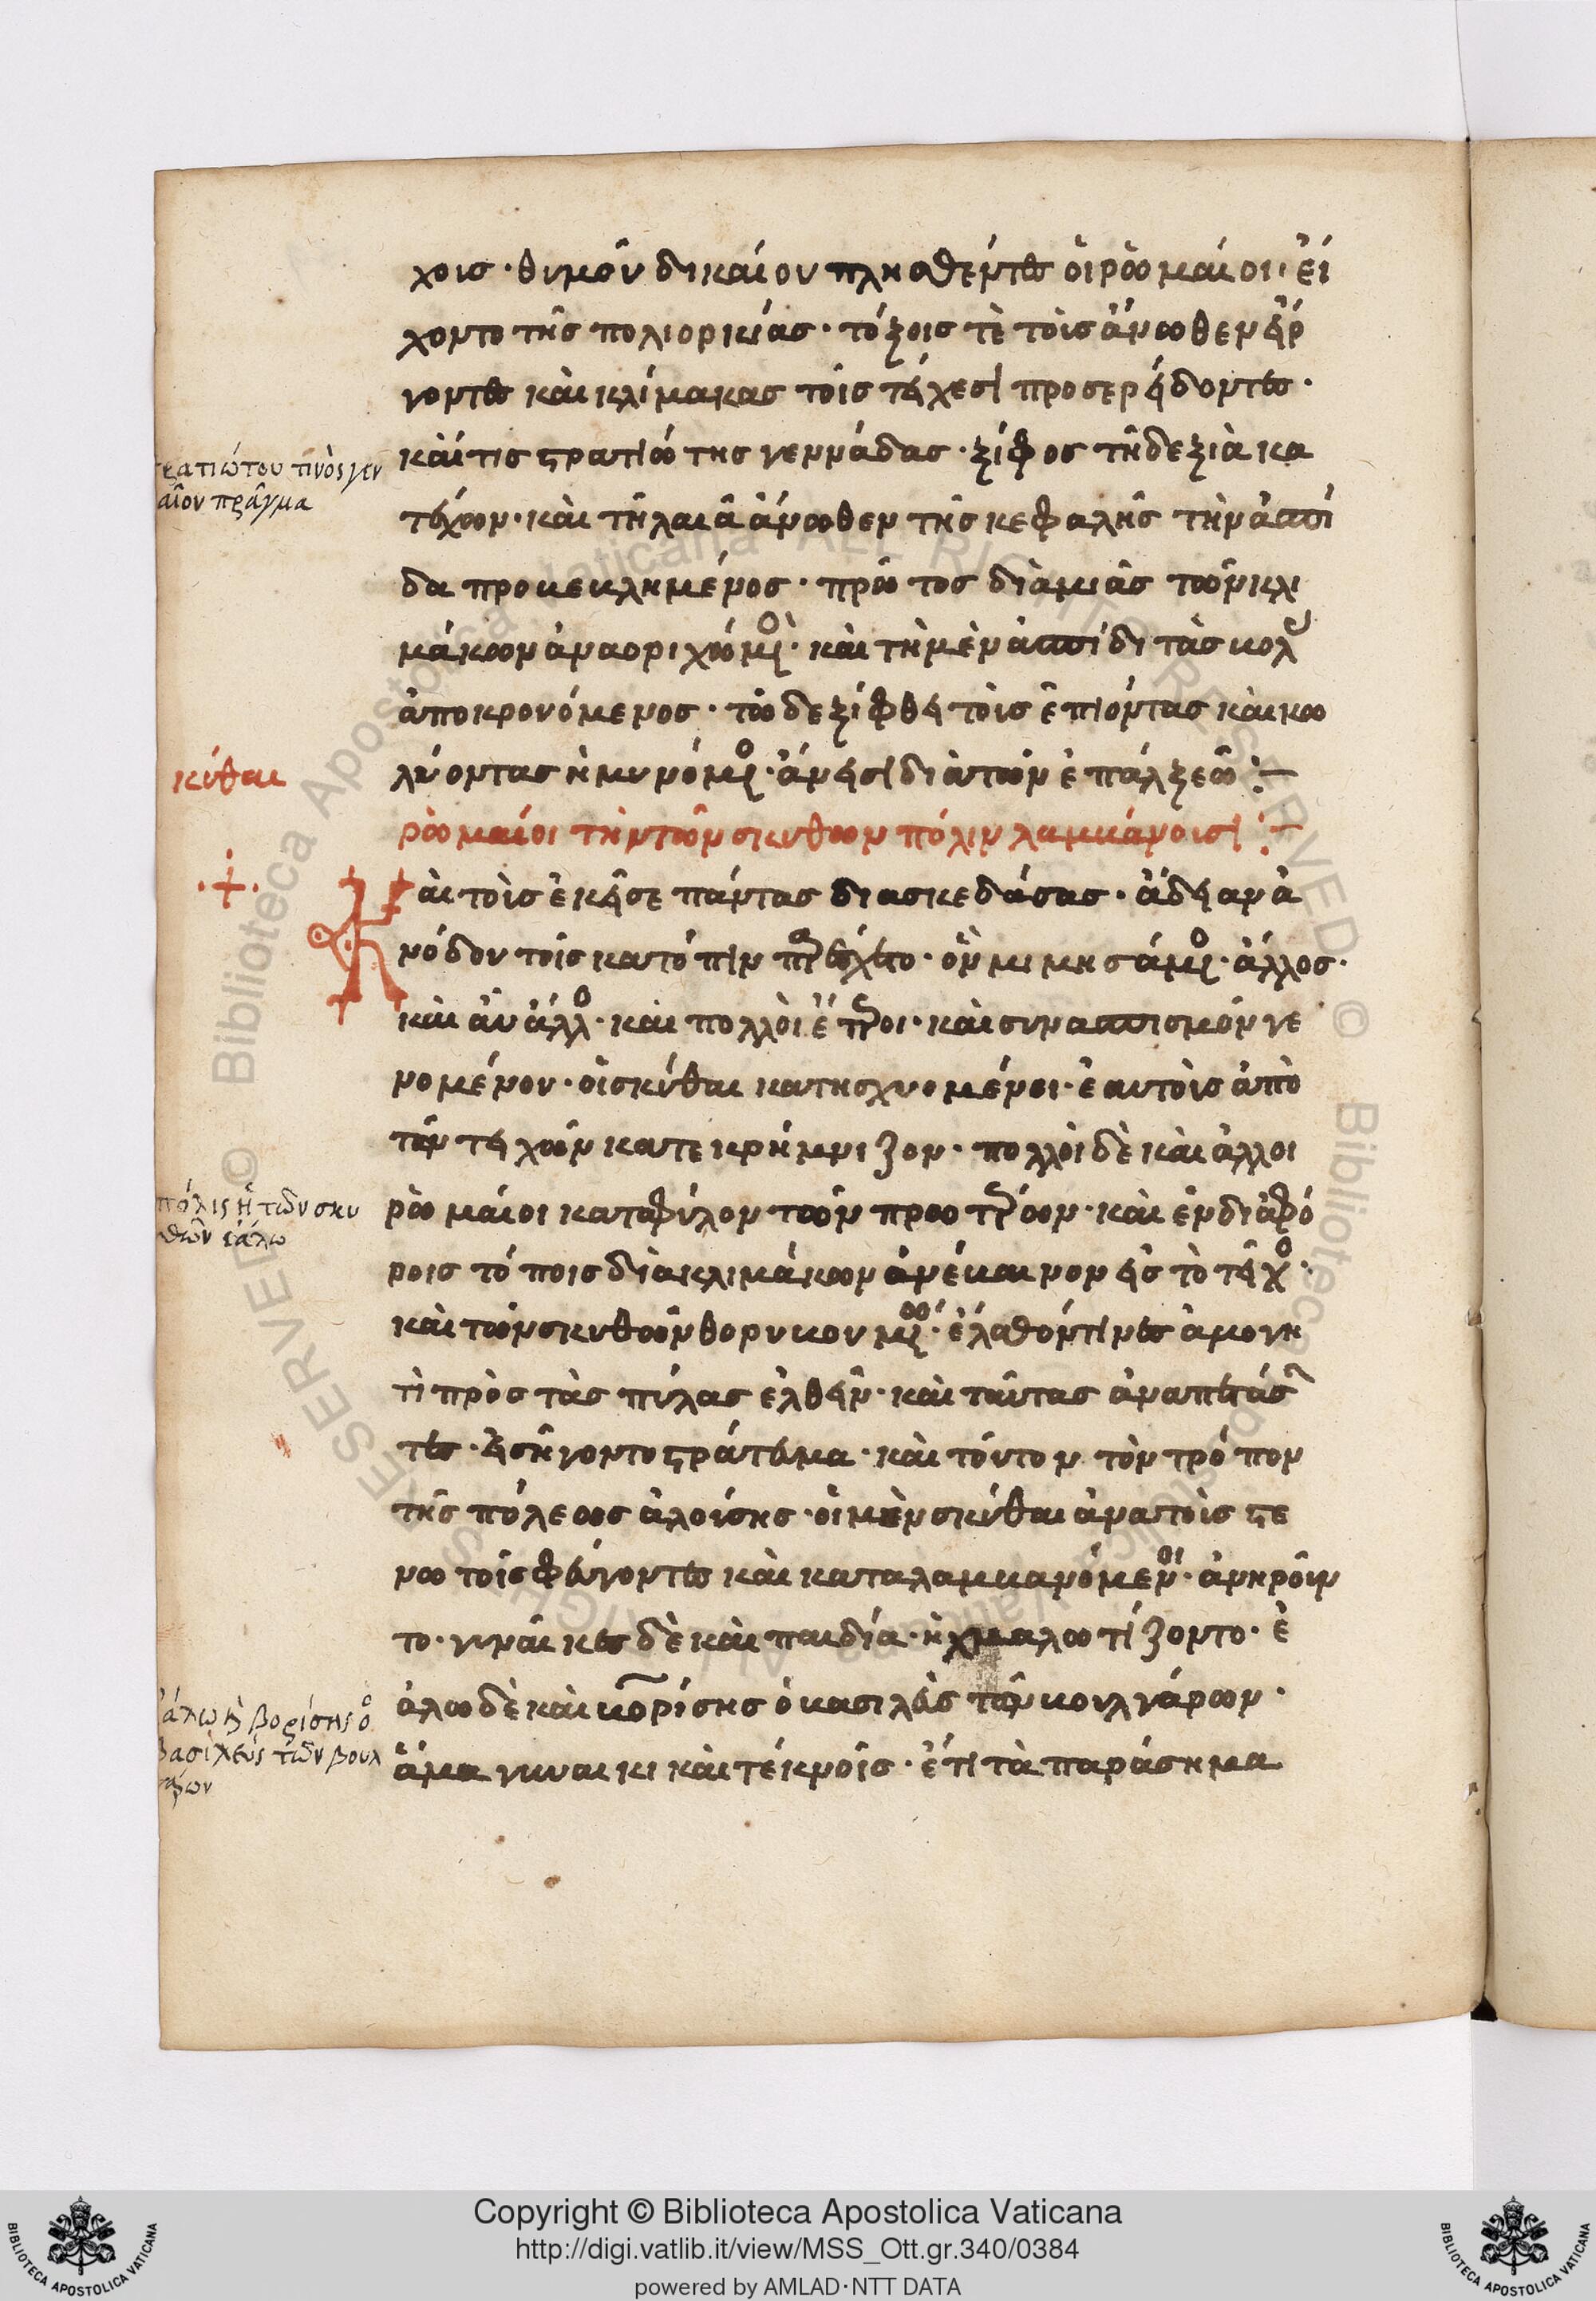 χοις · θυμοῦ δικαίου πλησθέντες οἱ ῥωμαίοι · εἴ
χοντο τῆς πολιορκίας · τόξοις τὲ τοὺς ἄνωθεν εἴρ
γοντες καὶ κλίμακας τοῖς τείχεσι προσερείδοντες ·
καί τις στρατιώτης γεννάδας · ξίφος τῆ δεξιὰ κα
τέχων · καὶ τῆ λαιᾶ ἄνωθεν τῆς κεφαλῆς τὴν ἀσπί
δα προβεβλημένος · πρῶτος διὰ μιᾶς τῶν κλι
μάκων ἀναοριχώμενος · καὶ τῆ μὲν ἀσπίδι τὰς βολὰς
ἀποκρουόμενος · τῶ δε ξίφει τοὺς ἐπιόντας καὶ κω
λύοντας ἠμυνόμενος · ἄνεισι διὰ τῶν ἐπάλξεων :—
ῥωμαίοι τὴν τῶν σκυθων πόλιν λαμβάνουσι :—
Καὶ τοὺς ἐκεῖσε πάντας διασκεδάσας · ἄδειαν ἀ
νόδου τοῖς κατόπιν παρέσχετο · ὃν μιμησάμενος · ἄλλος ·
καὶ αὖ ἄλλος · καὶ πολλοὶ ἕτεροι · καὶ συνασπισμοῦ γε
νομένου · οἱ σκύθαι κατησχυομένοι · ἑαυτοὺς ἀπὸ
τῶν τειχῶν κατεκρήμνιζον · πολλοὶ δὲ καὶ ἄλλοι
ῥωμαίοι κατὰ φύλον τῶν πρωτέρων · καὶ ἐν διαφό
ροις τόποις διὰ κλιμάκων ἀνέβαινον εἰς τὸ τεῖχος ·
καὶ τῶν σκυθῶν θορυβουμένων · ἔλαθόν τινες ἀμογη
τὶ πρὸς τὰς πύλας ελθεῖν · καὶ ταύτας ἀναπετάσαν
τες · εἰσῆγον το στράτευμα · καὶ τοῦτον τὸν τρόπον
τῆς πόλεως ἁλούσης · οἱ μὲν σκύθαι ἀνα τοὺς στε
νωτοὺς φεύγοντες καὶ καταλαμβανόμενοι · ἀνηροῦν
το · γυναῖκες δὲ καὶ παιδία · ἠχμαλωτίζοντο · ἑ
άλω δὲ καὶ βορίσης ὁ βασιλεὺς τῶν βουλγάρων ·
ἅμα γυναικι καὶ τέκνοις · ἔτι τὰ παράσημα
ρατιώτου τινὸς γεν
αῖον πρᾶγμα
κύθαι
πόλις ἡ τῶν σκυ
θῶν ἑάλω
ἑάλω καὶ βορίσης ὁ
βασιλεὺς τῶν βουλ
γάρων
Copyright © Biblioteca Apostolica Vaticana
http://digi.vatlib.it/view/MSS_Ott.gr.340/0384
powered by AMLAD·NTT DATA
BIBLIOTECA APOSTOLICA VATICANA
BIBLIOTECA APOSTOLICA VATICANA